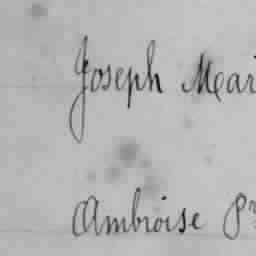 Joseph Mari
Ambroise Pr